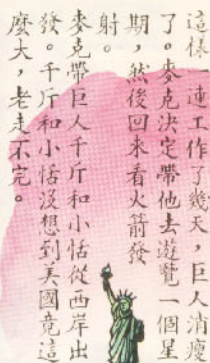 這樣一連工作了幾天，巨人消瘦
了。麥克決定帶他去遊覽一個星
期，然後回來看火箭發
射。
麥克帶巨人千斤和小恬從西岸出
發。千斤和小恬沒想到美國竟這
麼大，老走不完。